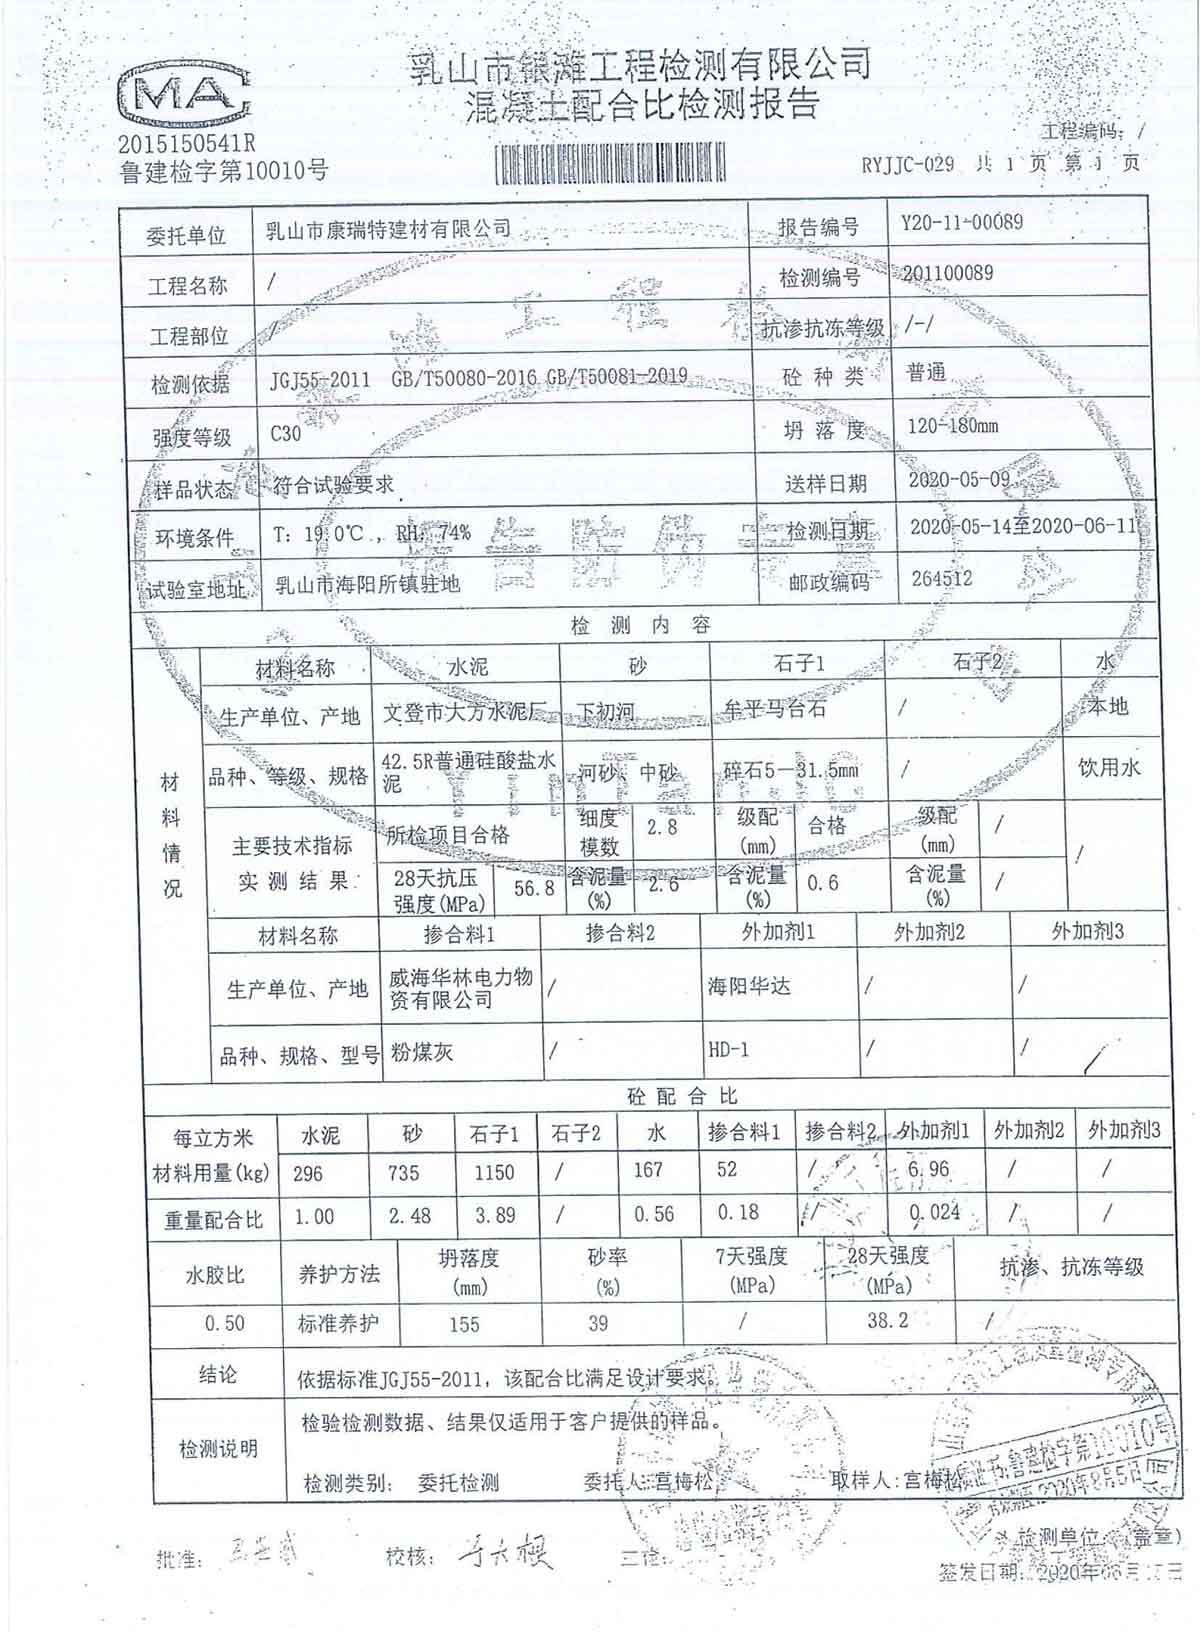 MA
2015150541R
鲁建检字第10010号
乳山市银滩工程检测有限公司
混凝土配合比检测报告
工程编码：/
RYJJC-029 共 1 页 第 1 页
委托单位 乳山市康瑞特建材有限公司 报告编号 Y20-11-00089
工程名称 / 检测编号 201100089
工程部位 / 抗渗抗冻等级 /-/
检测依据 JGJ55-2011 GB/T50080-2016 GB/T50081-2019 砼 种 类 普通
强度等级 C30 坍 落 度 120-180mm
样品状态 符合试验要求 送样日期 2020-05-09
环境条件 T: 19.0℃, RH: 74% 检测日期 2020-05-14至2020-06-11
试验室地址 乳山市海阳所镇驻地 邮政编码 264512
报告防伪专章
检 测 内 容
材料情况
材料名称 水泥 砂 石子1 石子2 水
生产单位、产地 文登市大方水泥厂 下初河 牟平马台石 / 本地
品种、等级、规格 42.5R普通硅酸盐水泥 河砂、中砂 碎石5－31.5mm / 饮用水
YinTanJC
主要技术指标 所检项目合格 细度模数 2.8 级配(mm) 合格 级配(mm) / /
实 测 结 果 28天抗压强度(MPa) 56.8 含泥量(%) 2.6 含泥量(%) 0.6 含泥量(%) /
材料名称 掺合料1 掺合料2 外加剂1 外加剂2 外加剂3
生产单位、产地 威海华林电力物资有限公司 / 海阳华达 / /
品种、规格、型号 粉煤灰 / HD-1 / /
砼 配 合 比
每立方米 水泥 砂 石子1 石子2 水 掺合料1 掺合料2 外加剂1 外加剂2 外加剂3
材料用量(kg) 296 735 1150 / 167 52 / 6.96 / /
重量配合比 1.00 2.48 3.89 / 0.56 0.18 / 0.024 / /
水胶比 养护方法 坍落度(mm) 砂率(%) 7天强度(MPa) 28天强度(MPa) 抗渗、抗冻等级
0.50 标准养护 155 39 / 38.2 /
结论 依据标准JGJ55-2011，该配合比满足设计要求。
检测说明 检验检测数据、结果仅适用于客户提供的样品。
检测类别： 委托检测 委托人:宫梅松 取样人:宫梅松
批准： 校核： 于大模
检测单位：（盖章）
签发日期：2020年06月